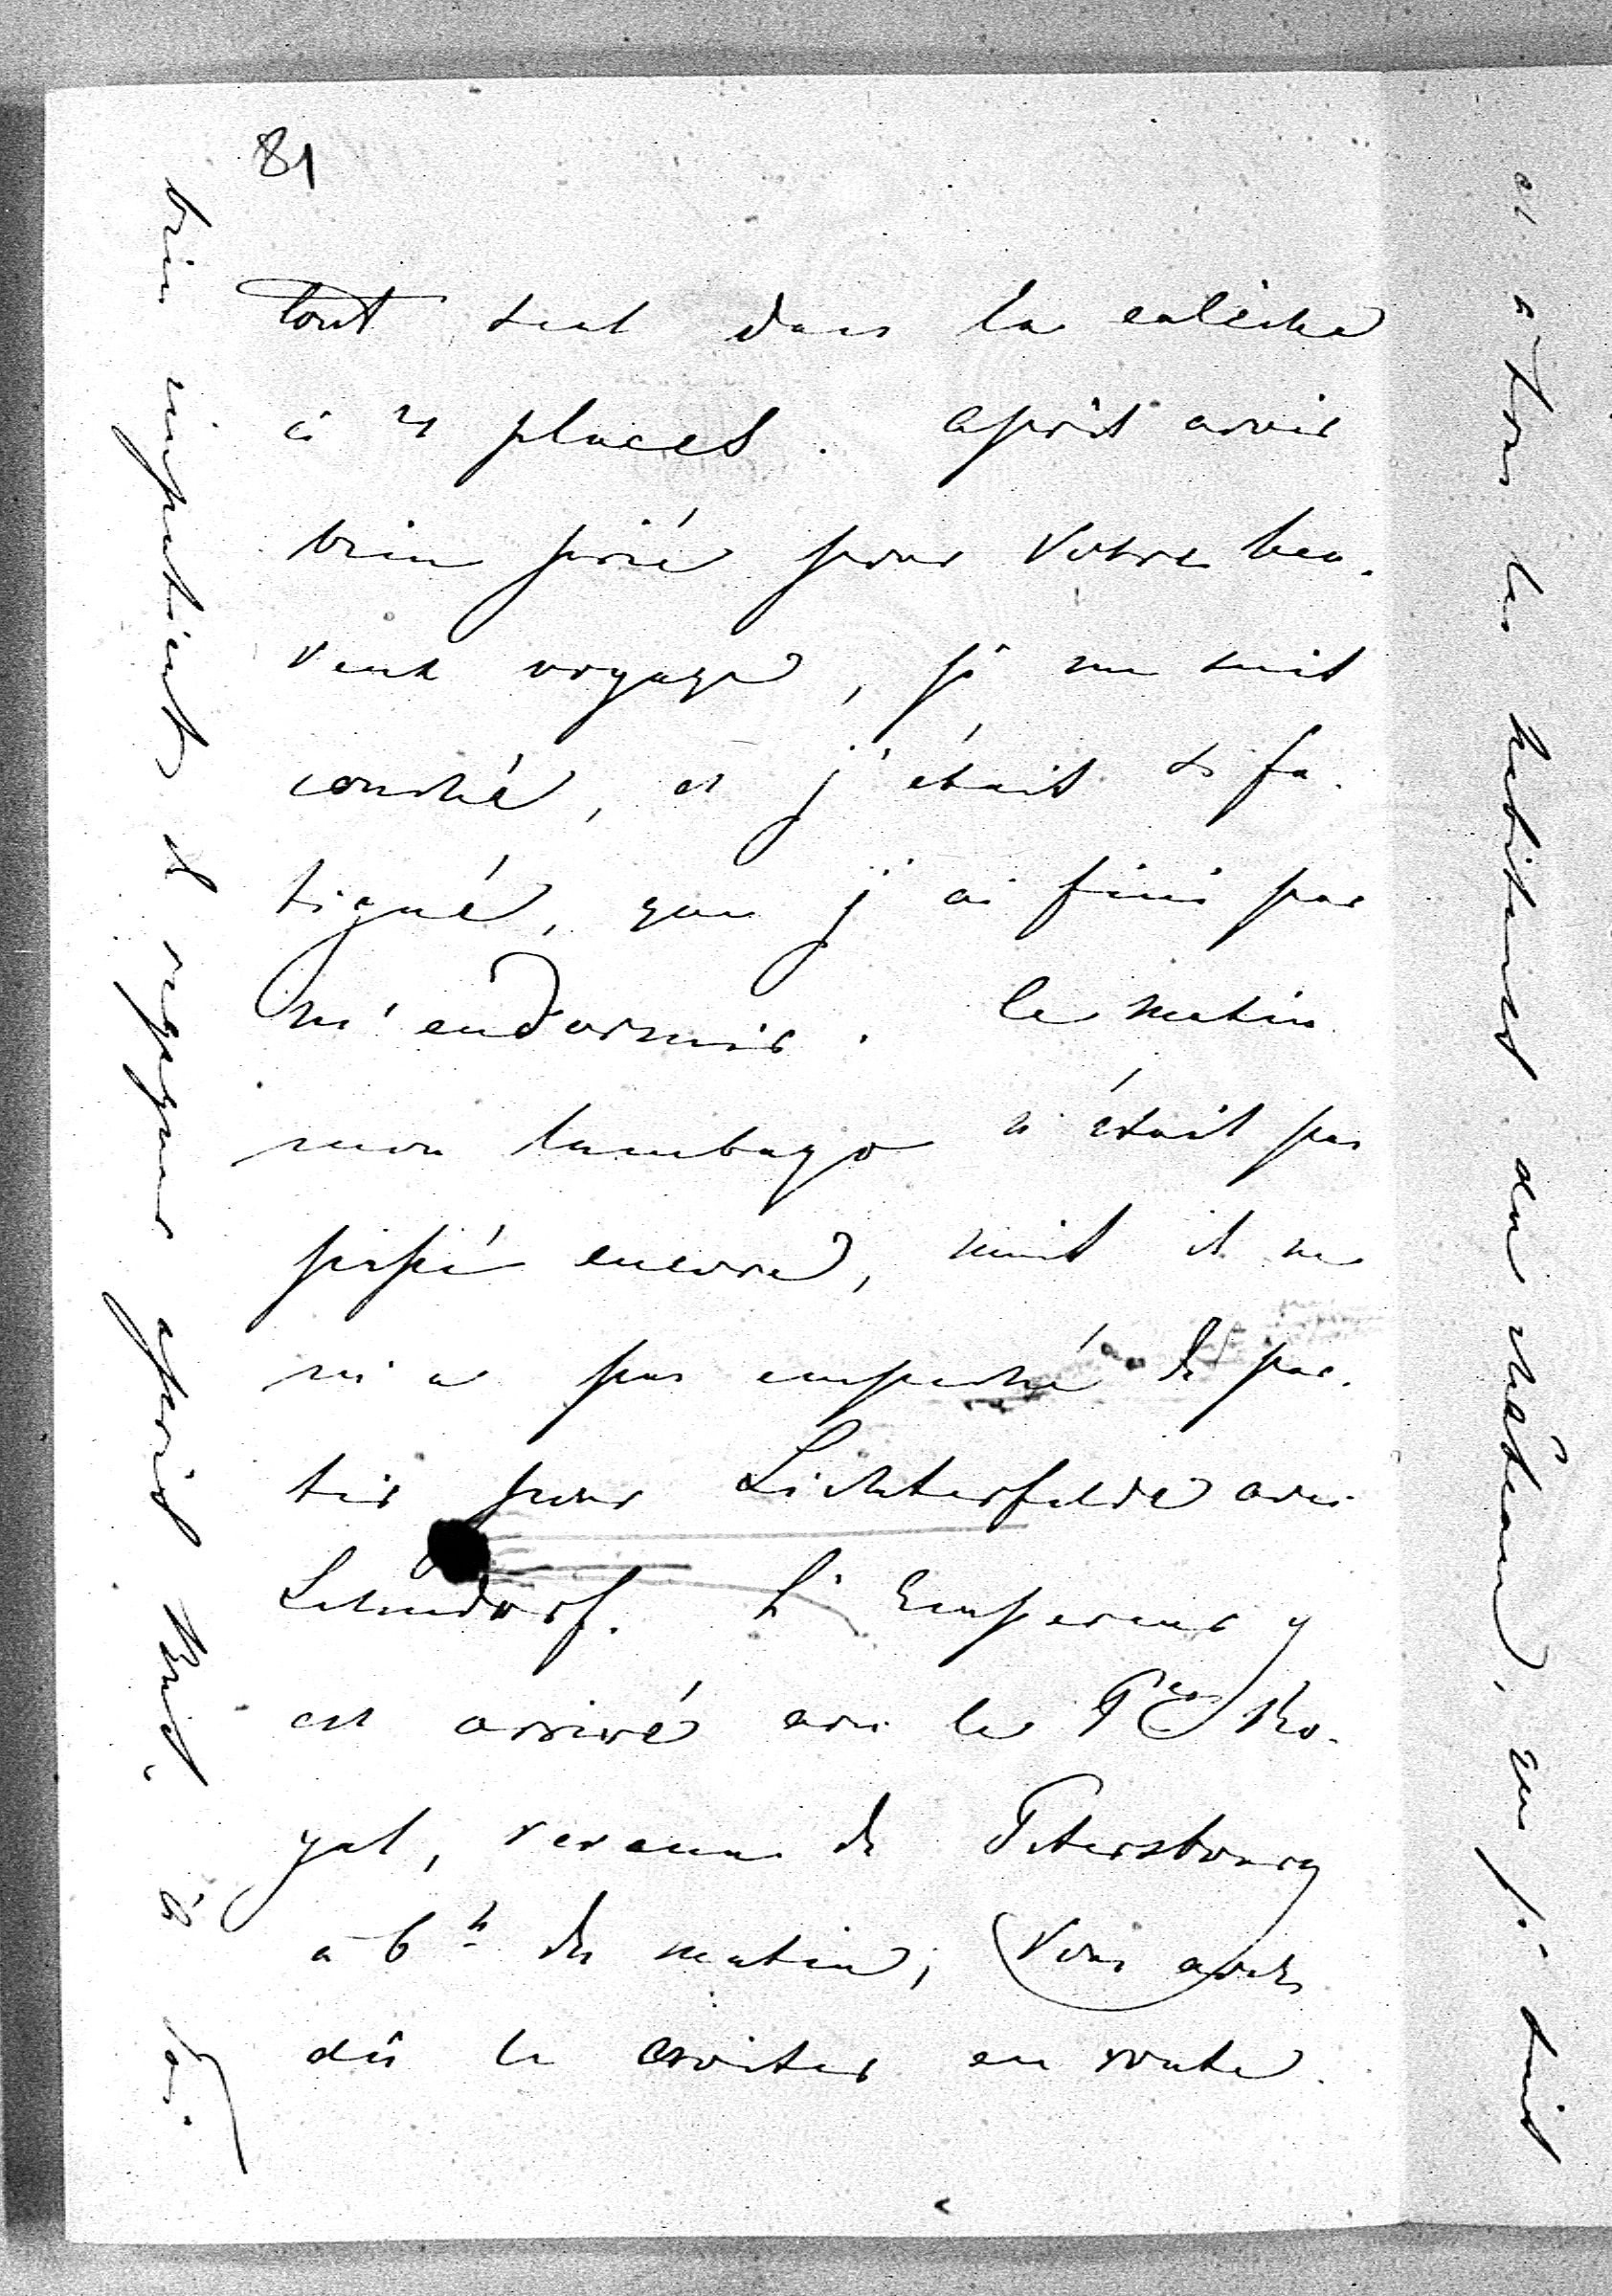 81
tout seul dans la calèche
à 4 places. Après avoir
bien prié pour Votre heu-
reux voyage, je me suis
couché, et j'étais si fa-
tigué, que j'ai fini par
m'endormir. Le matin
mon lumbago n'était pas
passé encore, mais il ne
m'a pas empeché de par-
tir pour Lichterfelde avec
Lehndorf. L'Empereur y
est arrivé avec le Pce Ro-
yal, revenu de Petersbourg
à 6h du matin; Vous avez
dû le croiser en route.
bien impatient de regagner après Vous. à la
et à tous les habitants du château, que je suis